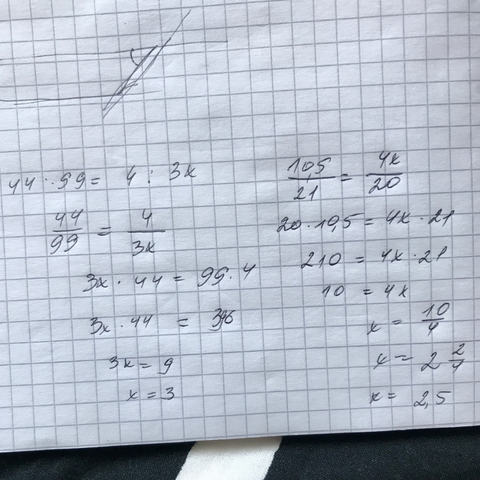 44 : 99 = 4 : 3x
44/99 = 4/3x
3x · 44 = 99 · 4
3x · 44 = 396
3x = 9
x = 3
10,5/21 = 4x/20
20 · 10,5 = 4x · 21
210 = 4x · 21
10 = 4x
x = 10/4
x = 2 2/4
x = 2,5